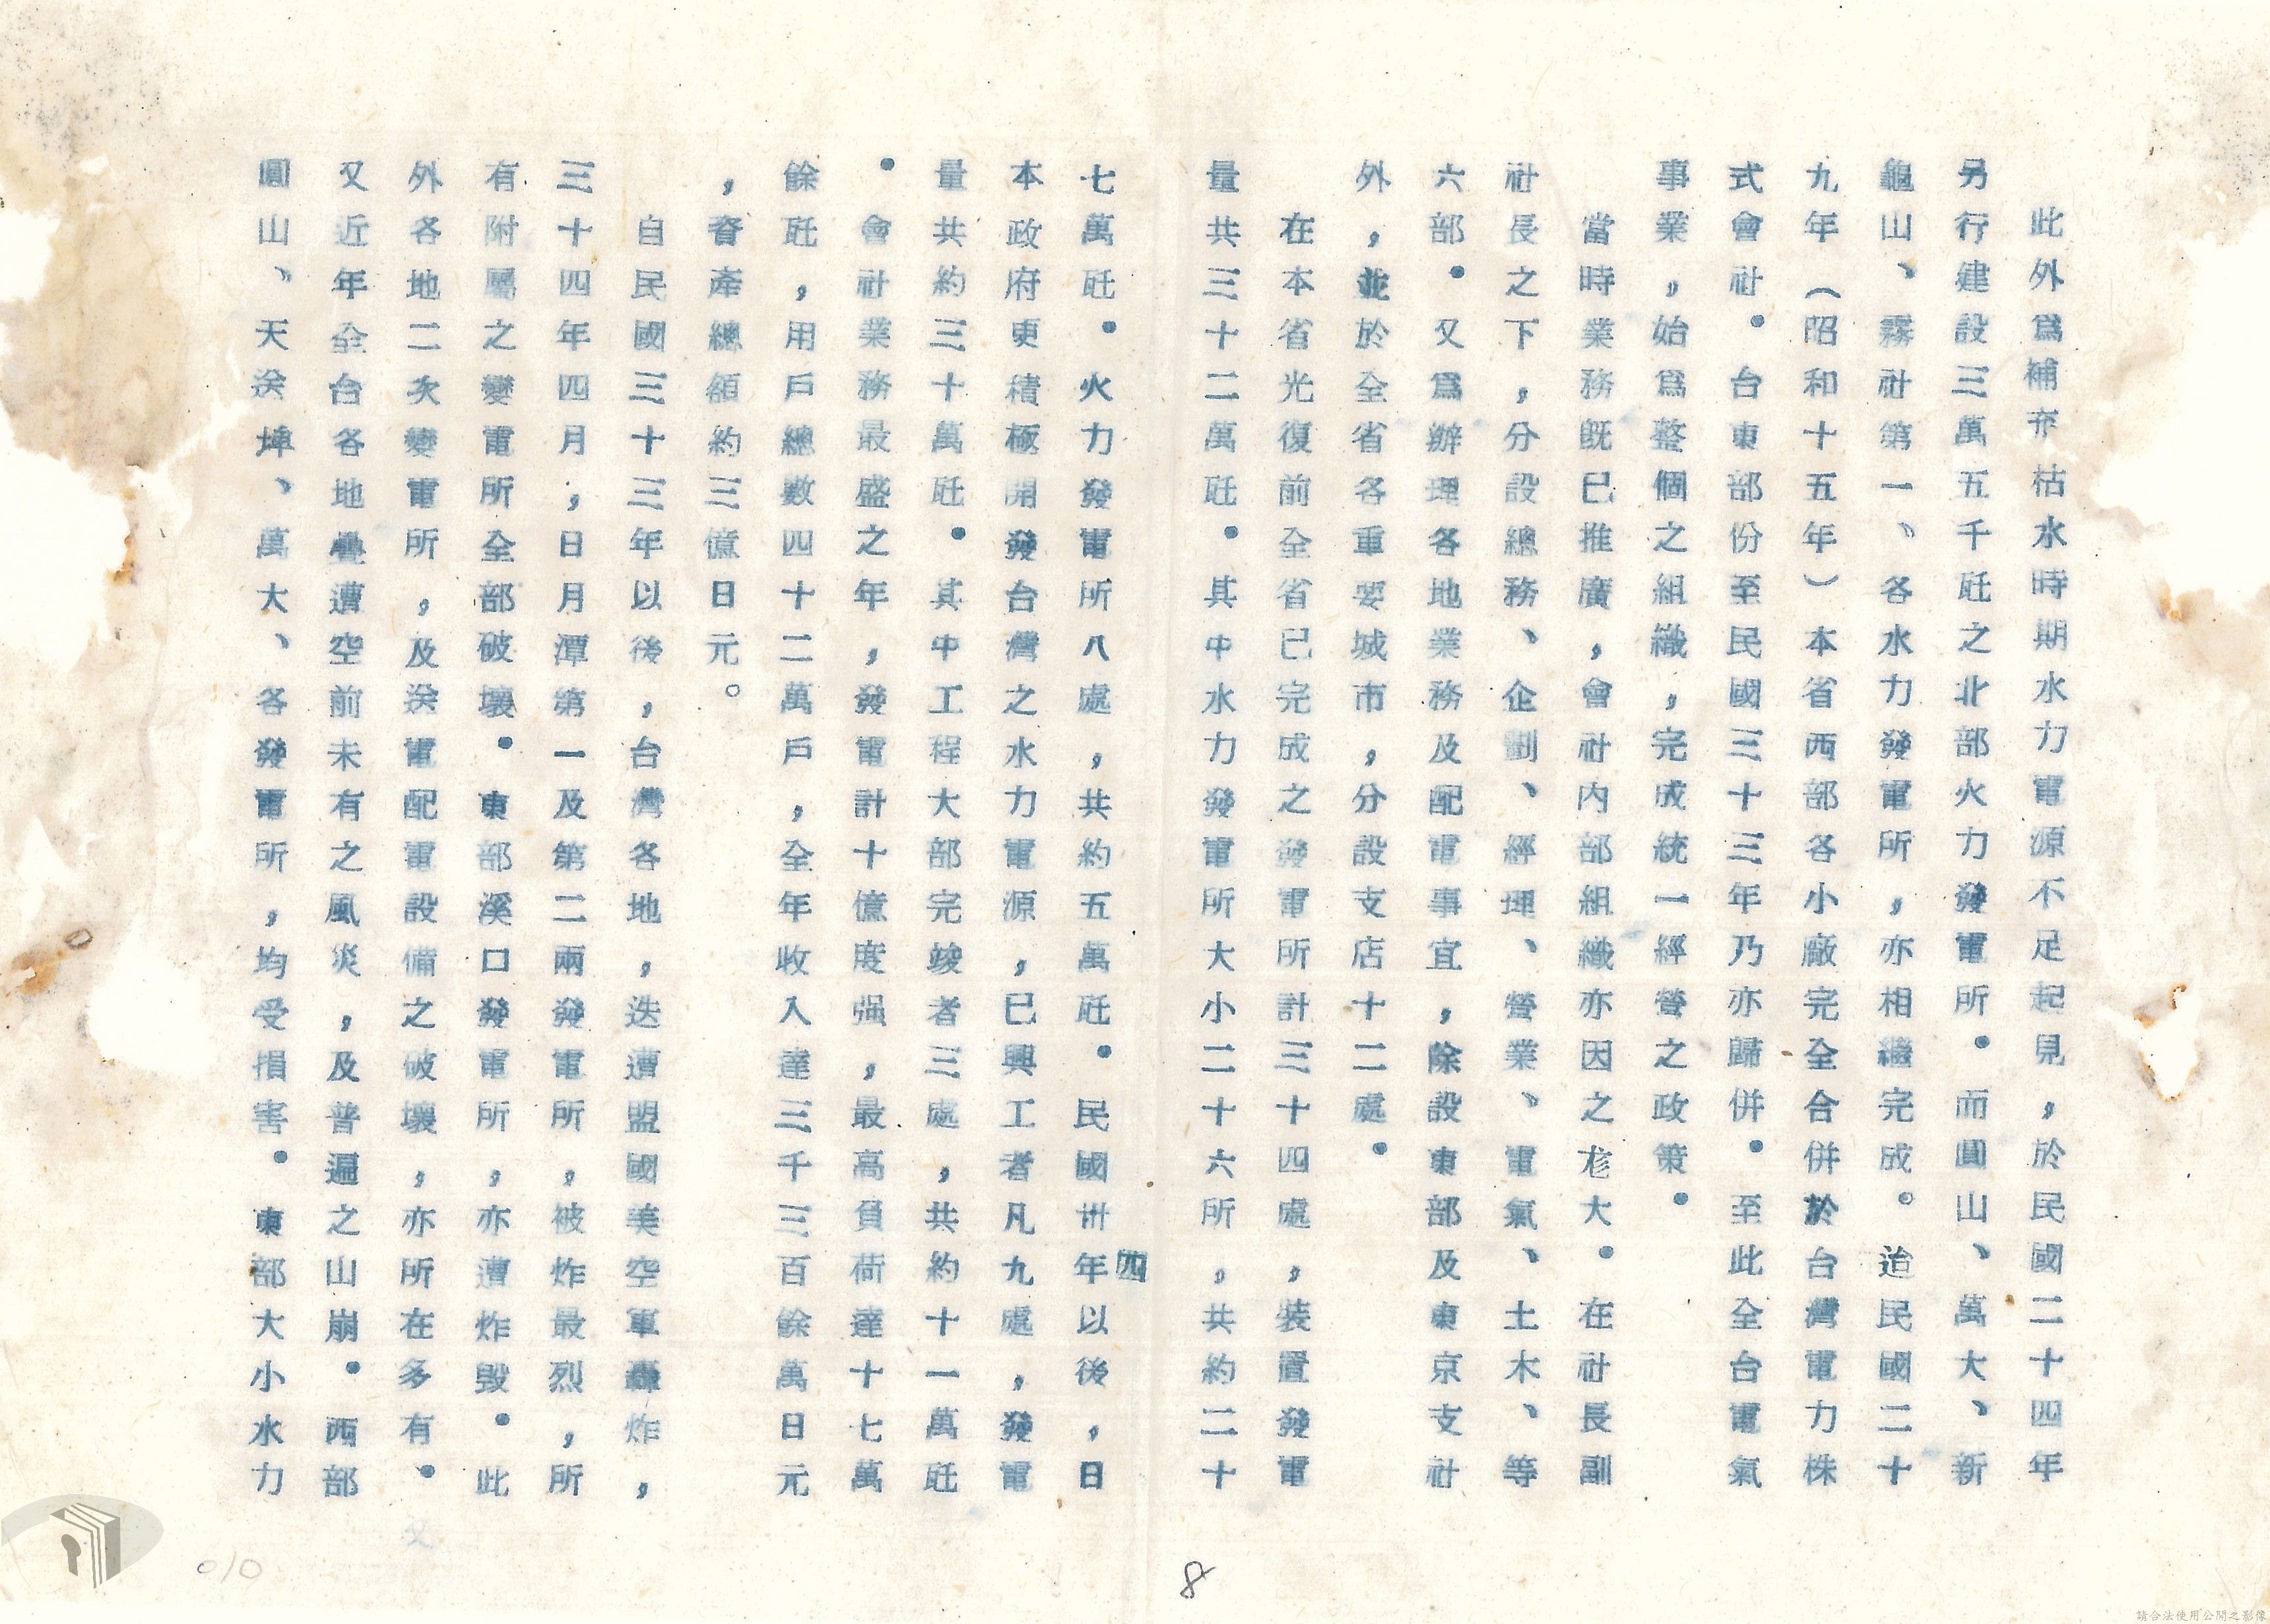 此外爲補充枯水時期水力電源不足起見，於民國二十四年
另行建設三萬五千瓩之北部火力發電所．而圓山、萬大、新
龜山、霧社第一、各水力發電所，亦相繼完成。迨民國二十
九年（昭和十五年）本省西部各小廠完全合併於台灣電力株
式會社．台東部份至民國三十三年乃亦歸併．至此全台電氣
事業，始爲整個之組織，完成統一經營之政策．
當時業務既已推廣，會社内部組織亦因之尨大．在社長副
社長之下，分設總務、企劃、經理、營業、電氣、土木、等
六部．又爲辦理各地業務及配電事宜，除設東部及東京支社
外，並於全省各重要城市，分設支店十二處．
在本省光復前全省已完成之發電所計三十四處，裝置發電
量共三十二萬瓩．其中水力發電所大小二十六所，共約二十
四
七萬瓩．火力發電所八處，共約五萬瓩．民國卅年以後，日
本政府更積極開發台灣之水力電源，已興工者凡九處，發電
量共約三十萬瓩．其中工程大部完竣者三處，共約十一萬瓩
．會社業務最盛之年，發電計十億度强，最高負荷達十七萬
餘瓩，用戶總數四十二萬戶，全年收入達三千三百餘萬日元
，資產總額約三億日元。
自民國三十三年以後，台灣各地，迭遭盟國美空軍轟炸，
三十四年四月，日月潭第一及第二兩發電所，被炸最烈，所
有附屬之變電所全部破壞．東部溪口發電所，亦遭炸毀．此
外各地二次變電所，及送電配電設備之破壞，亦所在多有．
又
又近年全台各地疊遭空前未有之風災，及普遍之山崩．西部
圓山、天送埤、萬大、各發電所，均受損害．東部大小水力
8
010
請合法使用公開之影像